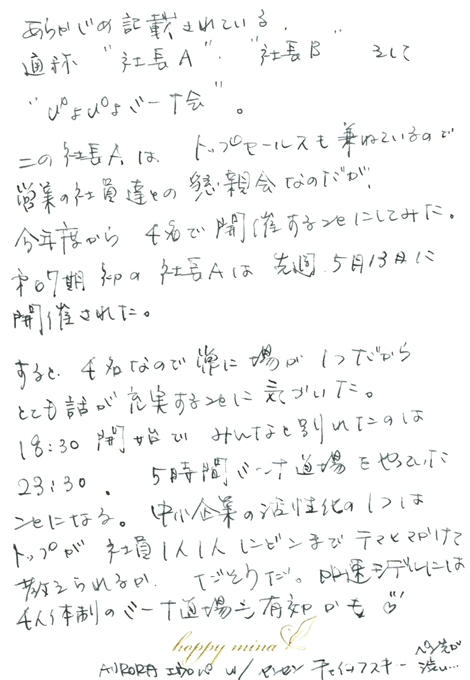 あらかじめ記載されている
通称 "社長A"、"社長B" そして
"ぴよぴよバーナ会"。
この社長Aは トップセールスも兼ねているので
営業の社員達との懇親会なのだが、
今年度から 4名で開催することにしてみた。
第67期 初の社長Aは 先週、5月13日に
開催された。
すると、4名なので常に場が1つだから
とても話が充実することに気がついた。
18:30 開始で みんなと別れたのは
23:30。 5時間バーナ道場をやっていた
ことになる。中小企業の活性化の1つは
トップが社員1人1人にどこまでテマヒマかけて
教えられるか、だそうだ。
4人体制のバーナ道場は有効かも♡
happy mina
AURORA w/ チャイコフスキー ペン先が
渋い…